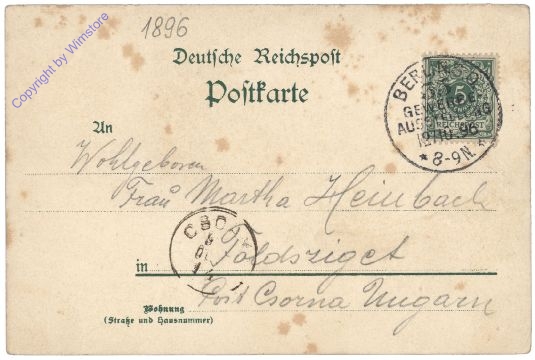 1896
Copyright by Wimstore
Deutsche Reichspost
Postkarte
BERLIN S.O.
GEWERBE
AUSSTELLUNG
96
* 8-9N. *
5
REICHSPOST
An
Wohlgeboren
Frau Martha Heinbach
CSOR
in Földsziget
Post Csorna Ungarn
Wohnung
(Straße und Hausnummer)